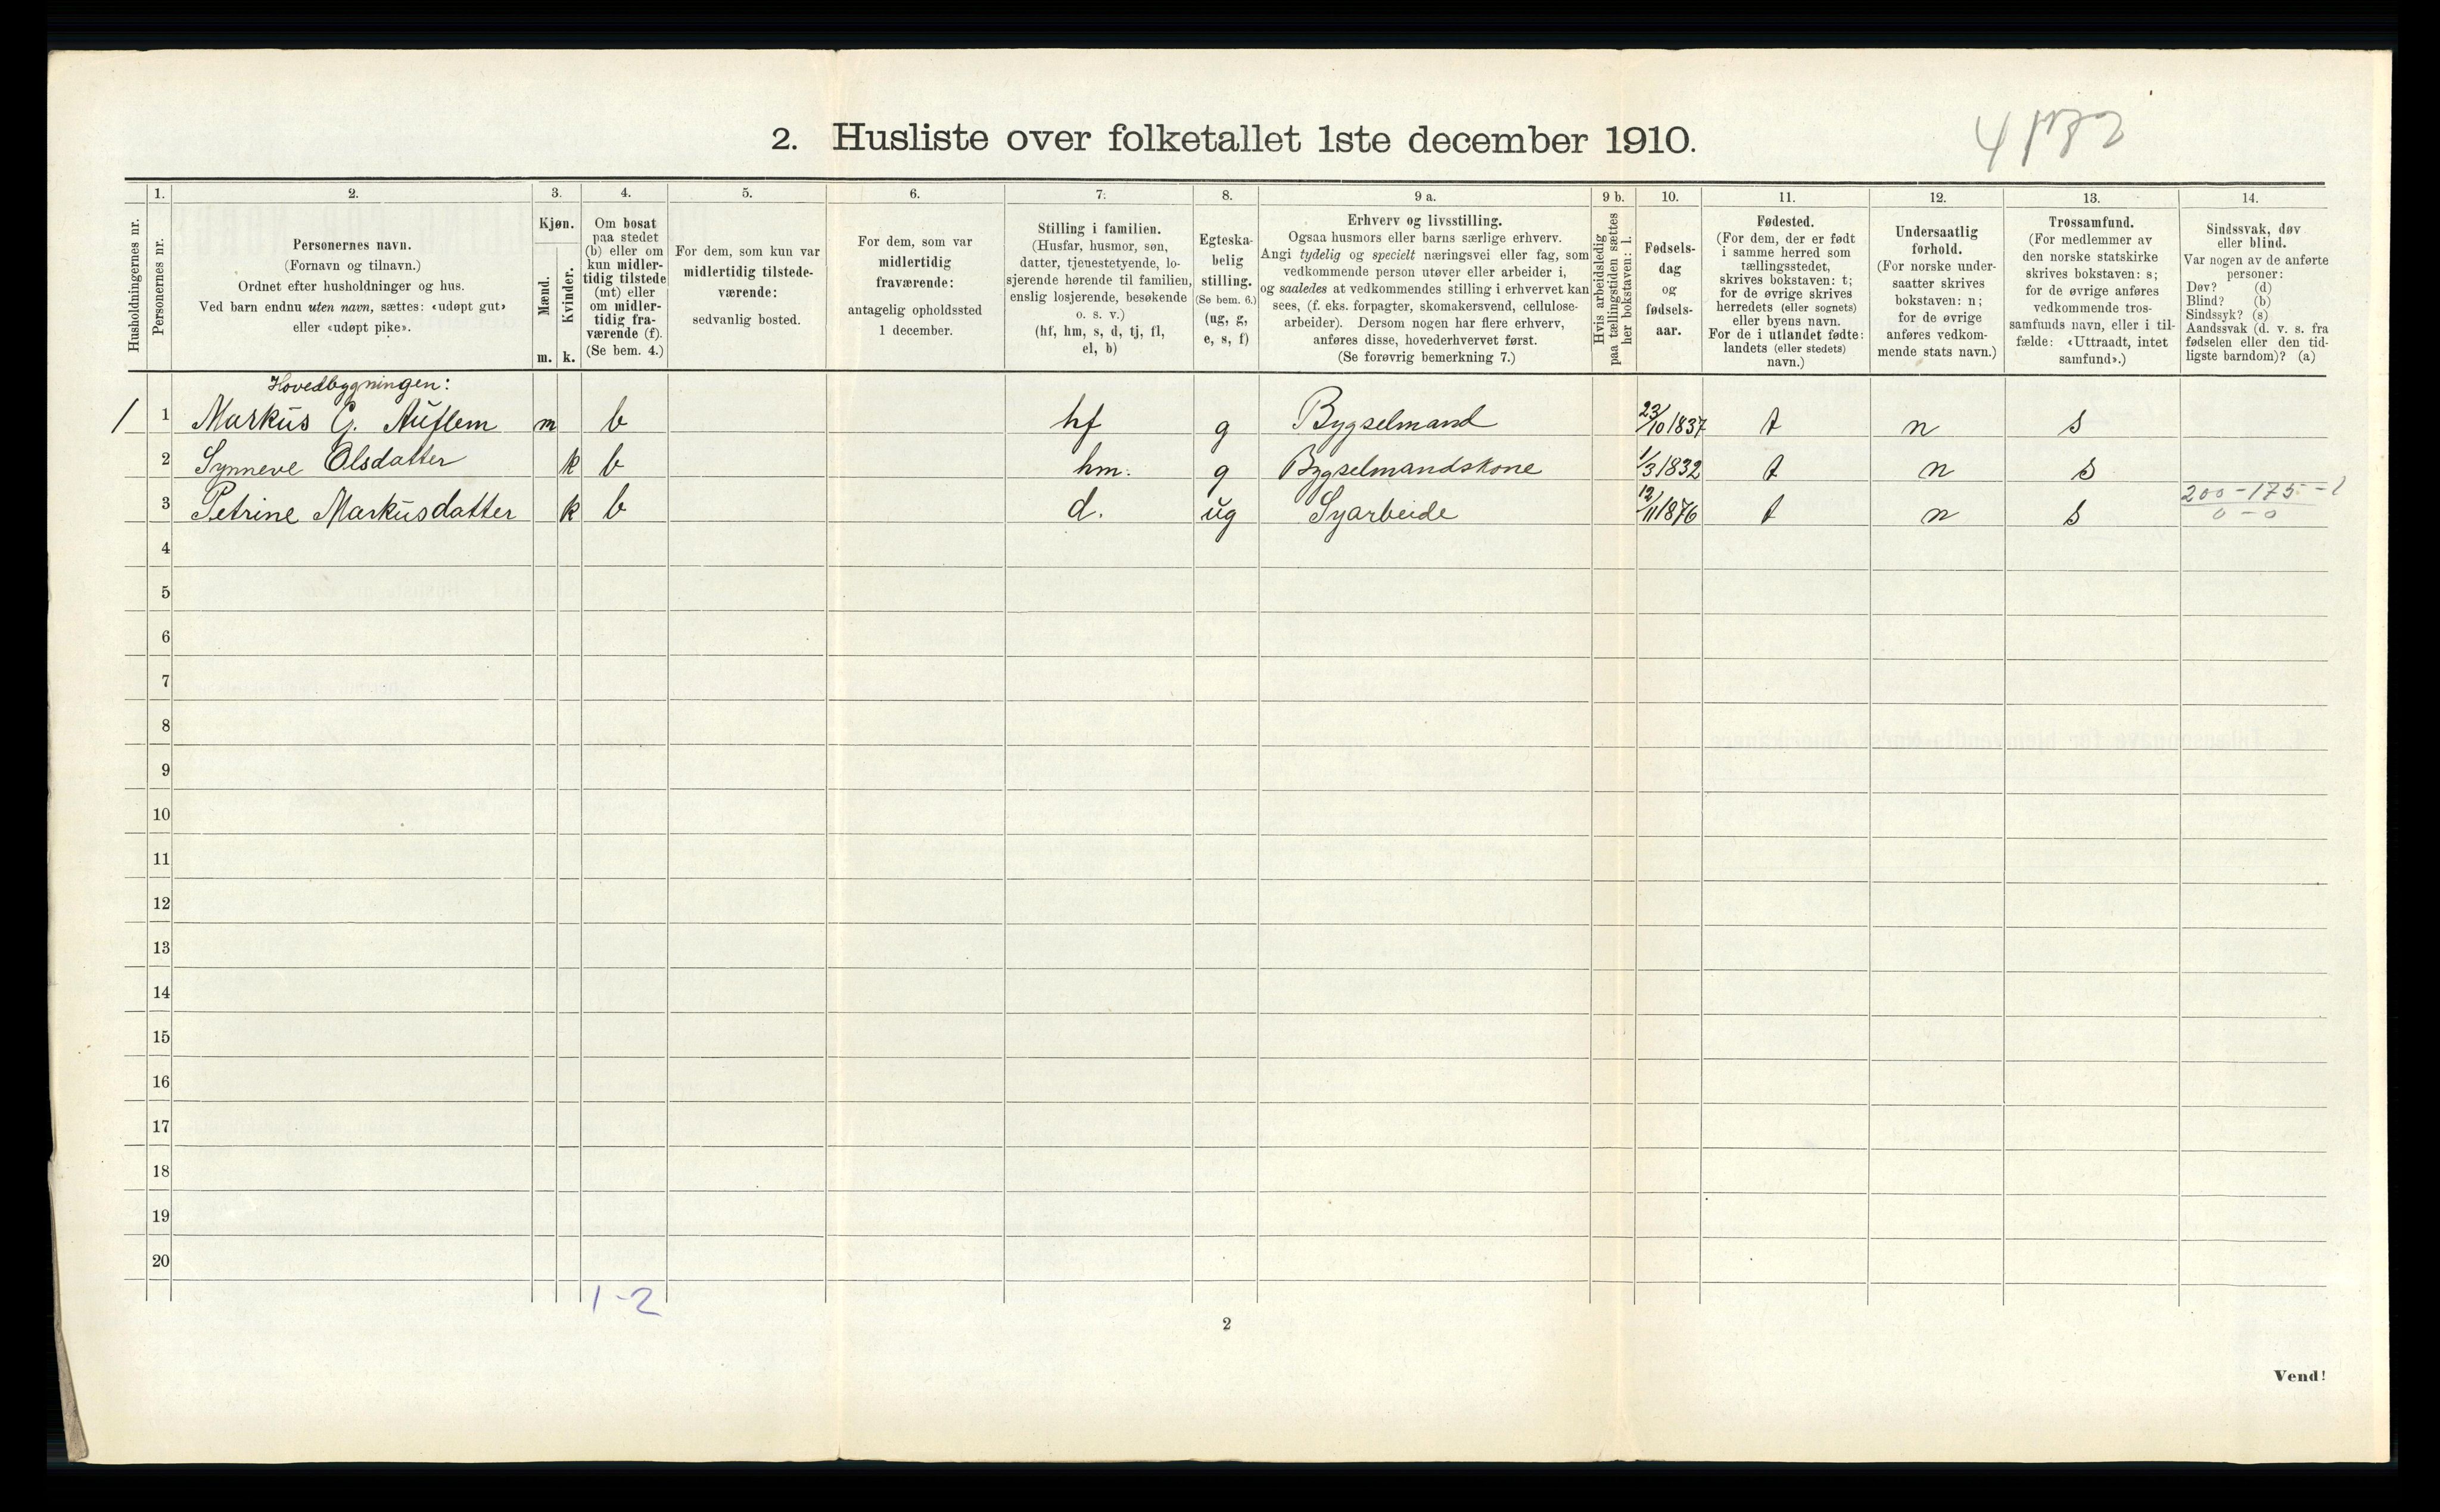 2. Husliste over folketallet 1ste december 1910.
Husholdningernes nr.
1.
Personernes nr.
2.
Personernes navn.
(Fornavn og tilnavn.)
Ordnet efter husholdninger og hus.
Ved barn endnu uten navn, sættes: «udøpt gut»
eller «udøpt pike».
3.
Kjøn.
Mænd.
Kvinder.
m. k.
4.
Om bosat
paa stedet
(b) eller om
kun midler-
tidig tilstede
(mt) eller
om midler-
tidig fra-
værende (f).
(Se bem. 4.)
5.
For dem, som kun var
midlertidig tilstede-
værende:
sedvanlig bosted.
6.
For dem, som var
midlertidig
fraværende:
antagelig opholdssted
1 december.
7.
Stilling i familien.
(Husfar, husmor, søn,
datter, tjenestetyende, lo-
sjerende hørende til familien,
enslig losjerende, besøkende
o. s. v.)
(hf, hm, s, d, tj, fl,
el, b)
8.
Egteska-
belig
stilling.
(Se bem. 6.)
(ug, g,
e, s, f)
9 a.
Erhverv og livsstilling.
Ogsaa husmors eller barns særlige erhverv.
Angi tydelig og specielt næringsvei eller fag, som
vedkommende person utøver eller arbeider i,
og saaledes at vedkommendes stilling i erhvervet kan
sees, (f. eks. forpagter, skomakersvend, cellulose-
arbeider). Dersom nogen har flere erhverv,
anføres disse, hovederhvervet først.
(Se forøvrig bemerkning 7.)
9 b.
Hvis arbeidsledig
paa tællingstiden sættes
her bokstaven: l.
10.
Fødsels-
dag
og
fødsels-
aar.
11.
Fødested.
(For dem, der er født
i samme herred som
tællingsstedet,
skrives bokstaven: t;
for de øvrige skrives
herredets (eller sognets)
eller byens navn.
For de i utlandet fødte:
landets (eller stedets)
navn.)
12.
Undersaatlig
forhold.
(For norske under-
saatter skrives
bokstaven: n;
for de øvrige
anføres vedkom-
mende stats navn.)
13.
Trossamfund.
(For medlemmer av
den norske statskirke
skrives bokstaven: s;
for de øvrige anføres
vedkommende tros-
samfunds navn, eller i til-
fælde: «Uttraadt, intet
samfund».)
14.
Sindssvak, døv
eller blind.
Var nogen av de anførte
personer:
Døv? (d)
Blind? (b)
Sindssyk? (s)
Aandssvak (d. v. s. fra
fødselen eller den tid-
ligste barndom)? (a)
Hovedbygningen:
1 1 Markus G. Auflem m b hf g Bygselmand 23/10 1837 t n s
2 Synneve Olsdatter k b hm. g Bygselmandskone 1/3 1832 t n s
3 Petrine Markusdatter k b d. ug Syarbeide 12/11 1876 t n s
200-175-1
0-0
4
5
6
7
8
9
10
11
12
13
14
15
16
17
18
19
20
1-2
2
Vend!